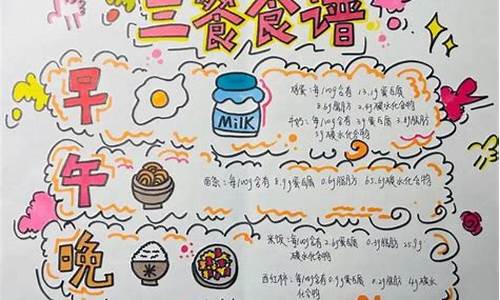 三餐食谱
早
MiLK
鸡蛋：每100g含有 13.1g蛋白质
8.6g脂肪 2.4g碳水化合物
牛奶：每100g含有 3g蛋白质 3.2g脂肪
碳水化合物
午
面条：每100g含有 8.9g蛋白质 0.6g脂肪 65.6g碳水化合物
晚
米
米饭：每100g含有 2.6g蛋白质 0.3g脂肪 25.9g
碳水化合物
西红柿：每100g含有0.9g蛋白质 0.2g脂肪 4g碳水
化合物